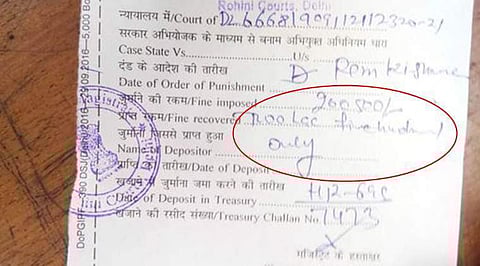 Rohini Courts, Delhi
न्यायालय में/Court of DL6668/909/12/12320-21
सरकार अभियोजक के माध्यम से बनाम अभियुक्त अधिनियम धारा
Case State Vs. U/s
दंड के आदेश की तारीख
Date of Order of Punishment D Ram Kishane
जुर्माने की रकम/Fine imposed 200500/-
प्राप्त रकम/Fine recovered Two Lac five hundred
जुर्माना जिससे प्राप्त हुआ only
Name of Depositor
प्राप्ति की तारीख/Date of Deposit
खजाने में जुर्माना जमा करने की तारीख
Date of Deposit in Treasury
खजाने की रसीद संख्या/Treasury Challan No. 7473
मजिस्ट्रेट के हस्ताक्षर